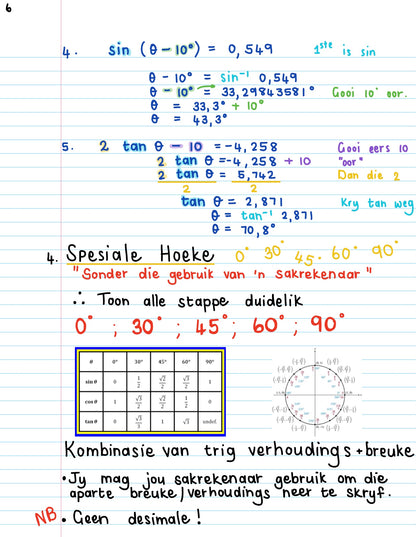 6
4. sin (θ - 10°) = 0,549 1ste is sin
θ - 10° = sin⁻¹ 0,549
θ - 10° = 33,29843581° Gooi 10° oor.
θ = 33,3° + 10°
θ = 43,3°
5. 2 tan θ - 10 = -4,258 Gooi eers 10
2 tan θ = -4,258 + 10 "oor"
2 tan θ = 5,742 Dan die 2
2 2
tan θ = 2,871 Kry tan weg
θ = tan⁻¹ 2,871
θ = 70,8°
4. Spesiale Hoeke 0° 30° 45° 60° 90°
"Sonder die gebruik van 'n sakrekenaar"
∴ Toon alle stappe duidelik
0° ; 30° ; 45° ; 60° ; 90°
θ 0° 30° 45° 60° 90°
sin θ 0 1/2 √2/2 √3/2 1
cos θ 1 √3/2 √2/2 1/2 0
tan θ 0 √3/3 1 √3 undef.
Kombinasie van trig verhoudings + breuke
• Jy mag jou sakrekenaar gebruik om die
aparte breuke/verhoudings neer te skryf.
NB • Geen desimale !